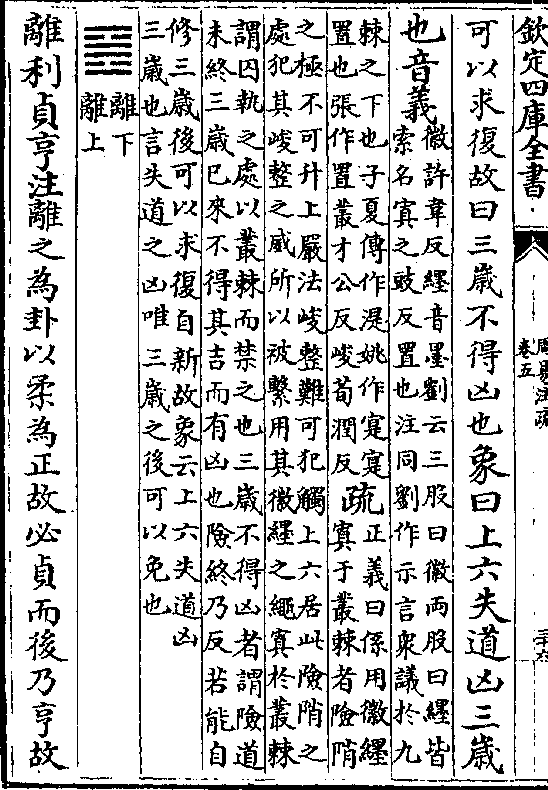 欽定四庫全書
卷五
可以求復故曰三歲不得凶也象曰上六失道凶三歲
也音義
徽許韋反纆音墨劉云三股曰徽兩股曰纆皆
索名寘之豉反置也注同劉作示言衆議於九
棘之下也子夏傳作湜姚作寔寔
置也張作置叢才公反峻荀潤反
疏
正義曰係用徽纆
寘于叢棘者險陗
之極不可升上嚴法峻整難可犯觸上六居此險陗之
處犯其峻整之威所以被繫用其徽纆之繩寘於叢棘
謂囚執之處以叢棘而禁之也三歲不得凶者謂險道
未終三歲已來不得其吉而有凶也險終乃反若能自
修三歲後可以求復自新故象云上六失道凶
三歲也言失道之凶唯三歲之後可以免也
䷝
離下
離上
離利貞亨注離之為卦以柔為正故必貞而後乃亨故